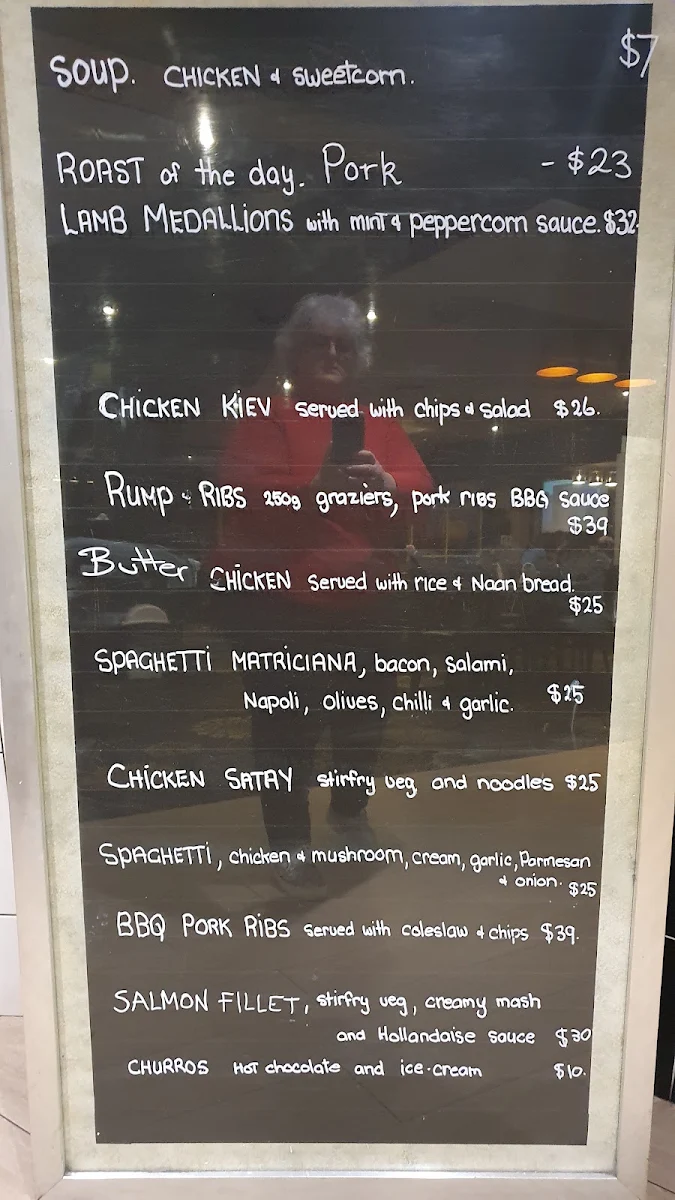 SOUP. CHICKEN & sweetcorn. $7
ROAST of the day. Pork - $23
LAMB MEDALLIONS with mint & peppercorn sauce. $32
CHICKEN KIEV served with chips & salad $26.
RUMP & RIBS 250g graziers, pork ribs BBQ sauce
$39
Butter CHICKEN served with rice & Naan bread.
$25
SPAGHETTI MATRICIANA, bacon, salami,
Napoli, olives, chilli & garlic. $25
CHICKEN SATAY stirfry veg and noodles $25
SPAGHETTI, chicken & mushroom, cream, garlic, Parmesan
& onion. $25
BBQ PORK RIBS served with coleslaw & chips $39.
SALMON FILLET, stirfry veg, creamy mash
and Hollandaise sauce $30
CHURROS Hot chocolate and ice-cream $10.